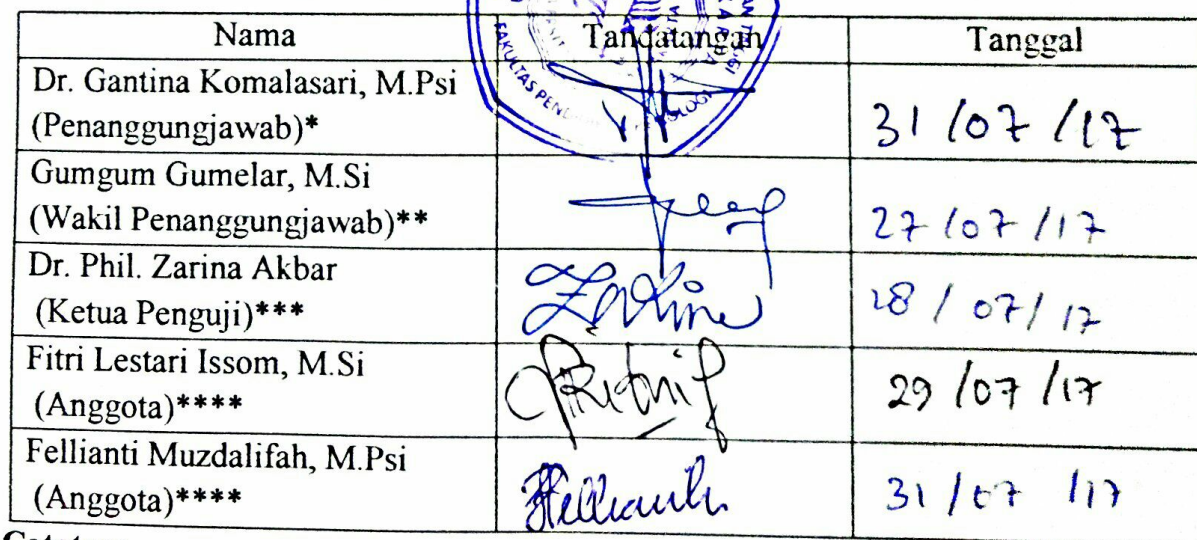 Nama Tandatangan Tanggal
Dr. Gantina Komalasari, M.Psi
(Penanggungjawab)* 31/07/17
Gumgum Gumelar, M.Si
(Wakil Penanggungjawab)** 27/07/17
Dr. Phil. Zarina Akbar
(Ketua Penguji)*** 28/07/17
Fitri Lestari Issom, M.Si
(Anggota)**** 29/07/17
Fellianti Muzdalifah, M.Psi
(Anggota)**** 31/07/17